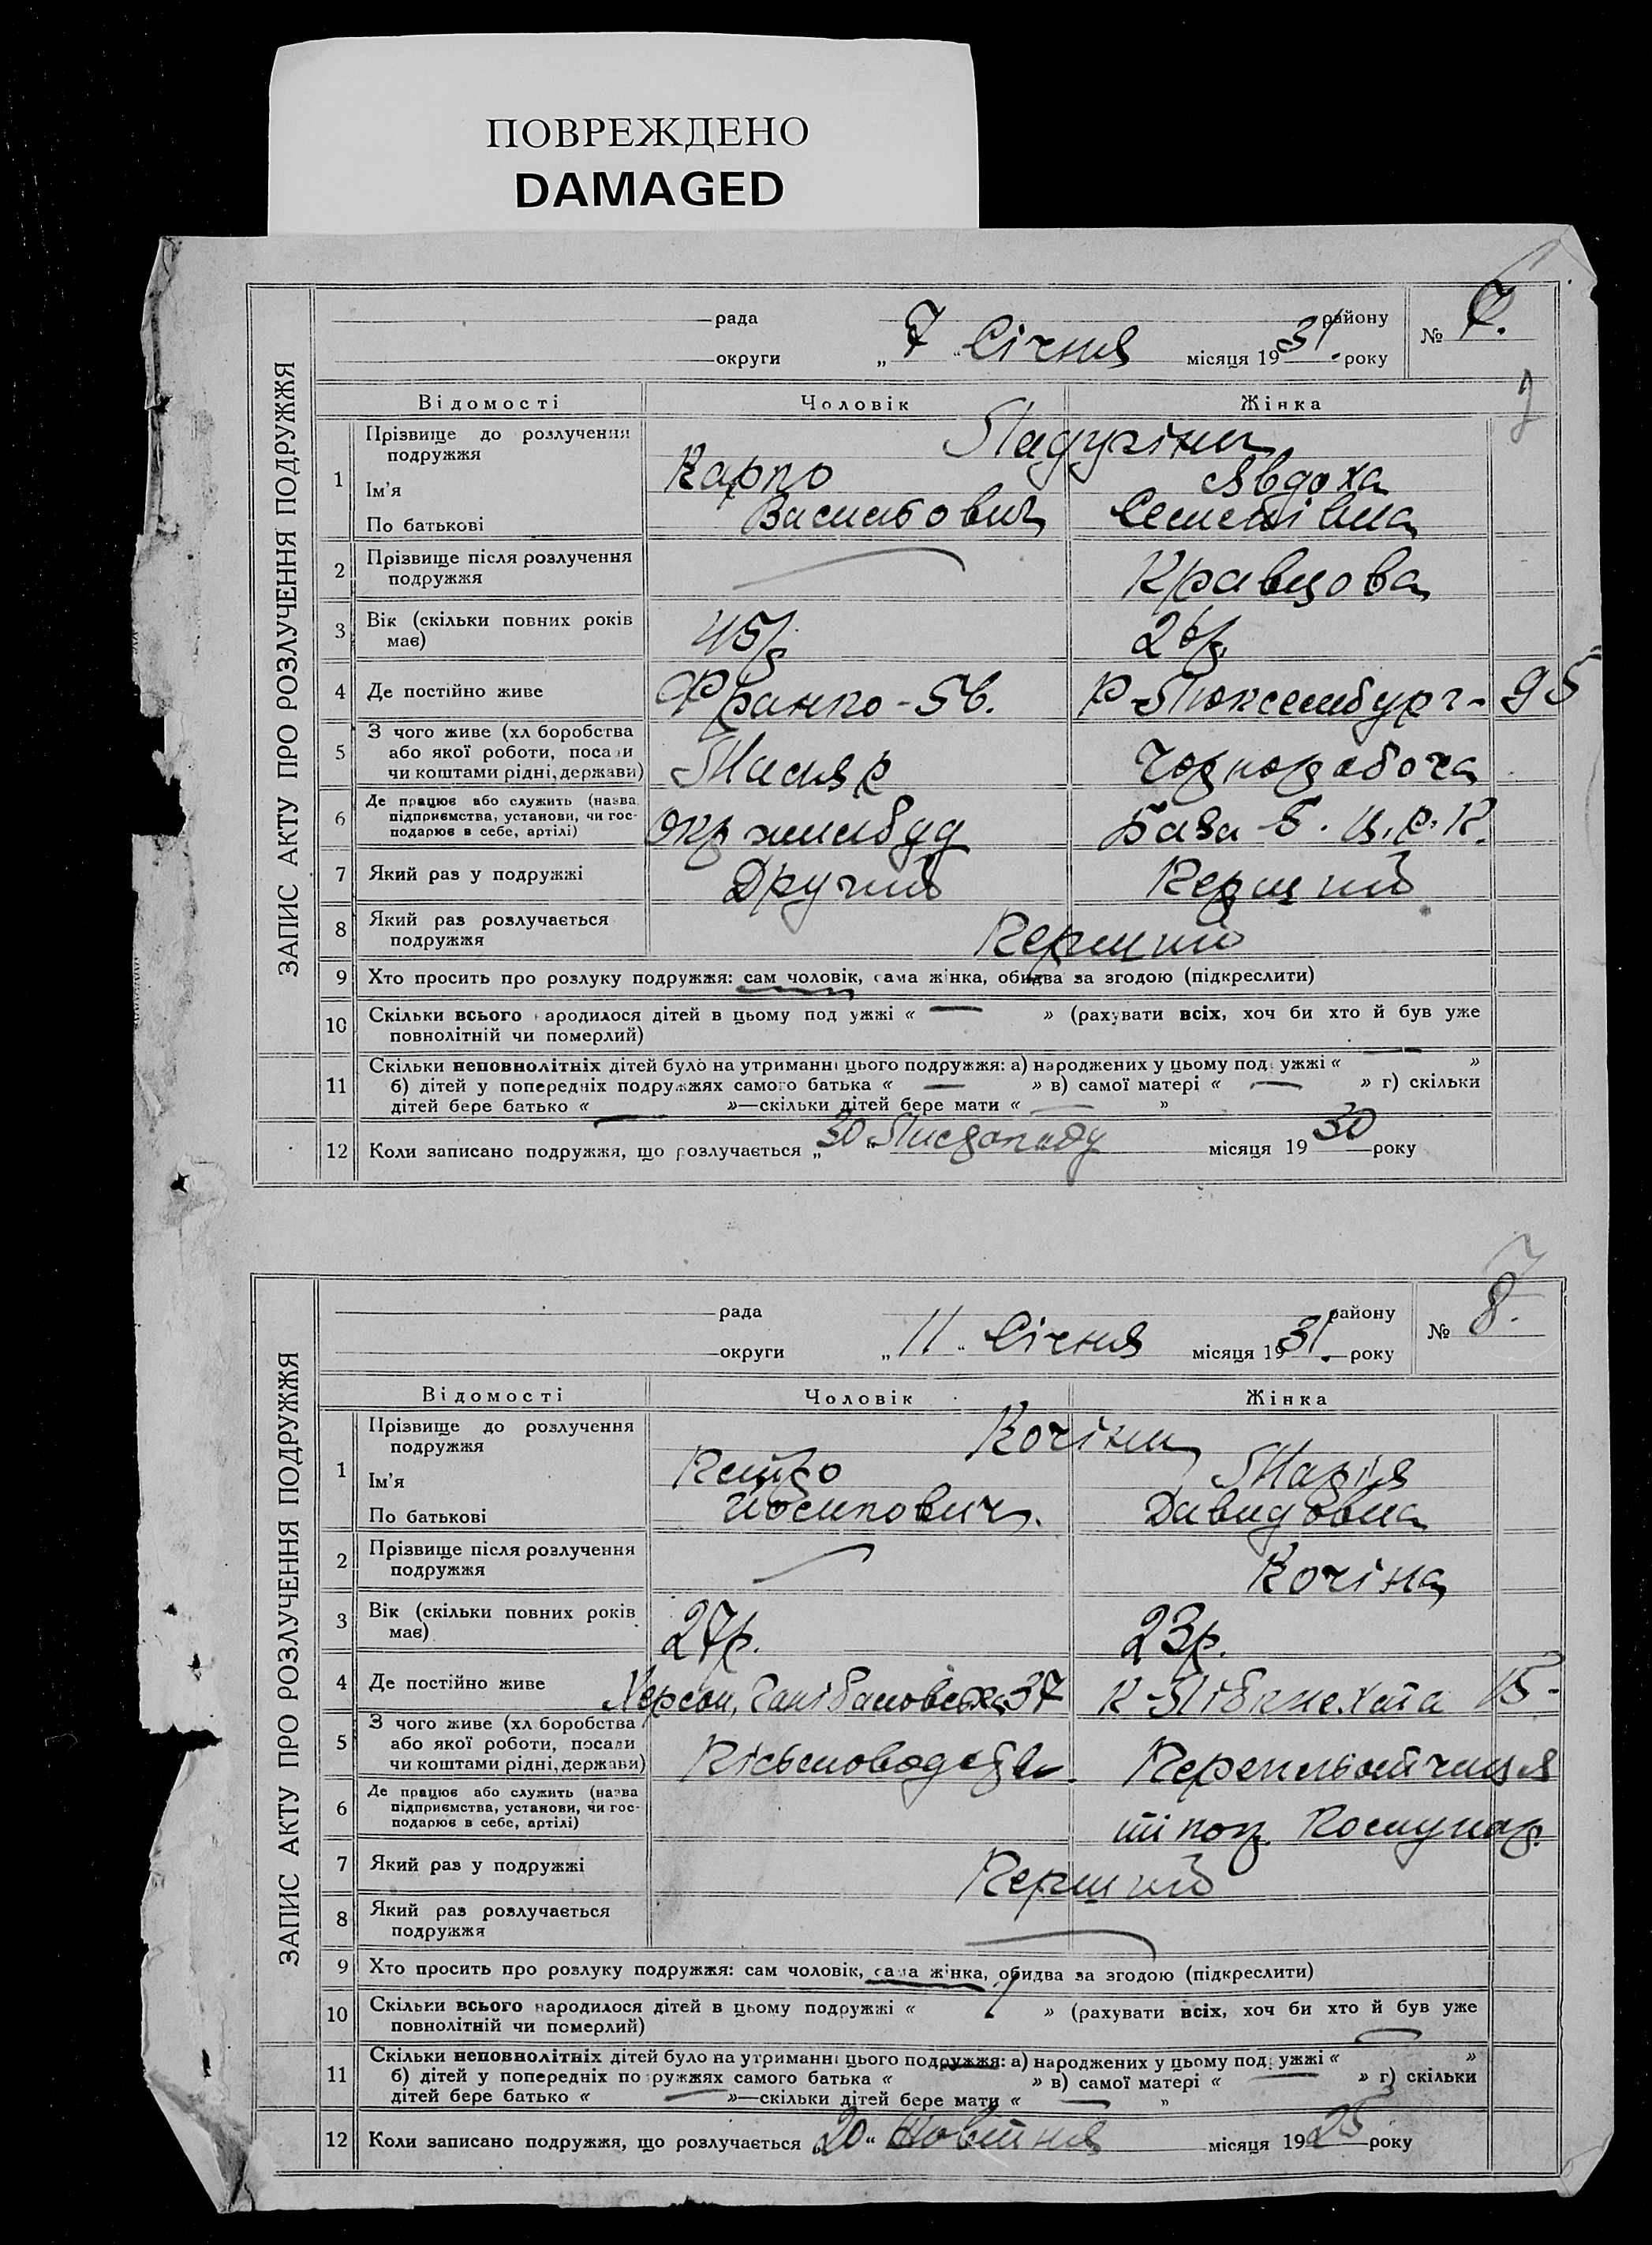 ПОВРЕЖДЕНО
DAMAGED
ЗАПИС АКТУ ПРО РОЗЛУЧЕННЯ ПОДРУЖЖЯ
рада району № 7.
округи „ 7 “ Січня місяця 1931. року
Відомості Чоловік Жінка
1 Прізвище до розлучення подружжя
Ім'я Карпо Явдоха
По батькові Васильович Семенівна
2 Прізвище після розлучення подружжя — Кравцова
3 Вік (скільки повних років має) 45/р 26/р.
4 Де постійно живе Франко-5в. Р-Люксембург- 95
5 З чого живе (хліборобства або якої роботи, посади чи коштами рідні, держави) Маляр Чорноробоча
6 Де працює або служить (назва підприємства, установи, чи господарює в себе, артілі) Окржилбуд База Б. Ц.Р.К.
7 Який раз у подружжі Другий Перший
8 Який раз розлучається подружжя Перший
9 Хто просить про розлуку подружжя: сам чоловік, сама жінка, обидва за згодою (підкреслити)
10 Скільки всього народилося дітей в цьому подружжі « — » (рахувати всіх, хоч би хто й був уже
повнолітній чи померлий)
11 Скільки неповнолітніх дітей було на утриманні цього подружжя: а) народжених у цьому подружжі « — »
б) дітей у попередніх подружжях самого батька « — » в) самої матері « — » г) скільки
дітей бере батько « — »—скільки дітей бере мати « — »
12 Коли записано подружжя, що розлучається „30“ Листопаду місяця 1930 року
ЗАПИС АКТУ ПРО РОЗЛУЧЕННЯ ПОДРУЖЖЯ
рада району № 8.
округи „ 11 “ Січня місяця 1931. року
Відомості Чоловік Жінка
1 Прізвище до розлучення подружжя Кочіни
Ім'я Петро Марія
По батькові Йосипович. Давидовна
2 Прізвище після розлучення подружжя — Кочіна
3 Вік (скільки повних років має) 27р. 23р.
4 Де постійно живе Херсон, 37 К-Лібкнехта 15-
5 З чого живе (хліборобства або якої роботи, посади чи коштами рідні, держави) Палітурниця
6 Де працює або служить (назва підприємства, установи, чи господарює в себе, артілі)
7 Який раз у подружжі Перший
8 Який раз розлучається подружжя —
9 Хто просить про розлуку подружжя: сам чоловік, сама жінка, обидва за згодою (підкреслити)
10 Скільки всього народилося дітей в цьому подружжі « 1 » (рахувати всіх, хоч би хто й був уже
повнолітній чи померлий)
11 Скільки неповнолітніх дітей було на утриманні цього подружжя: а) народжених у цьому подружжі « — »
б) дітей у попередніх подружжях самого батька « — » в) самої матері « — » г) скільки
дітей бере батько « — »—скільки дітей бере мати « — »
12 Коли записано подружжя, що розлучається „20“ Жовтня місяця 1925 року